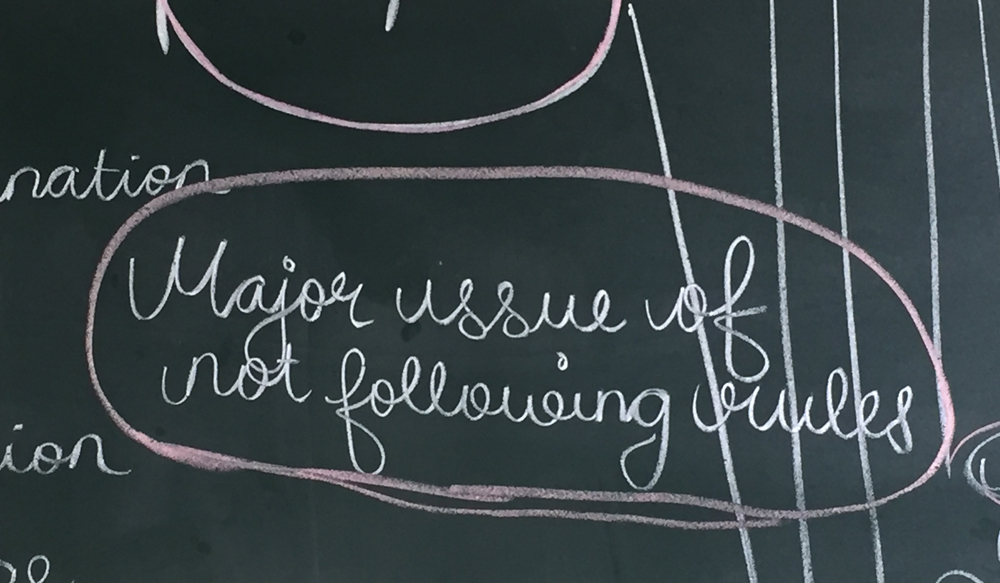 nation
Major issue of
not following rules
ion